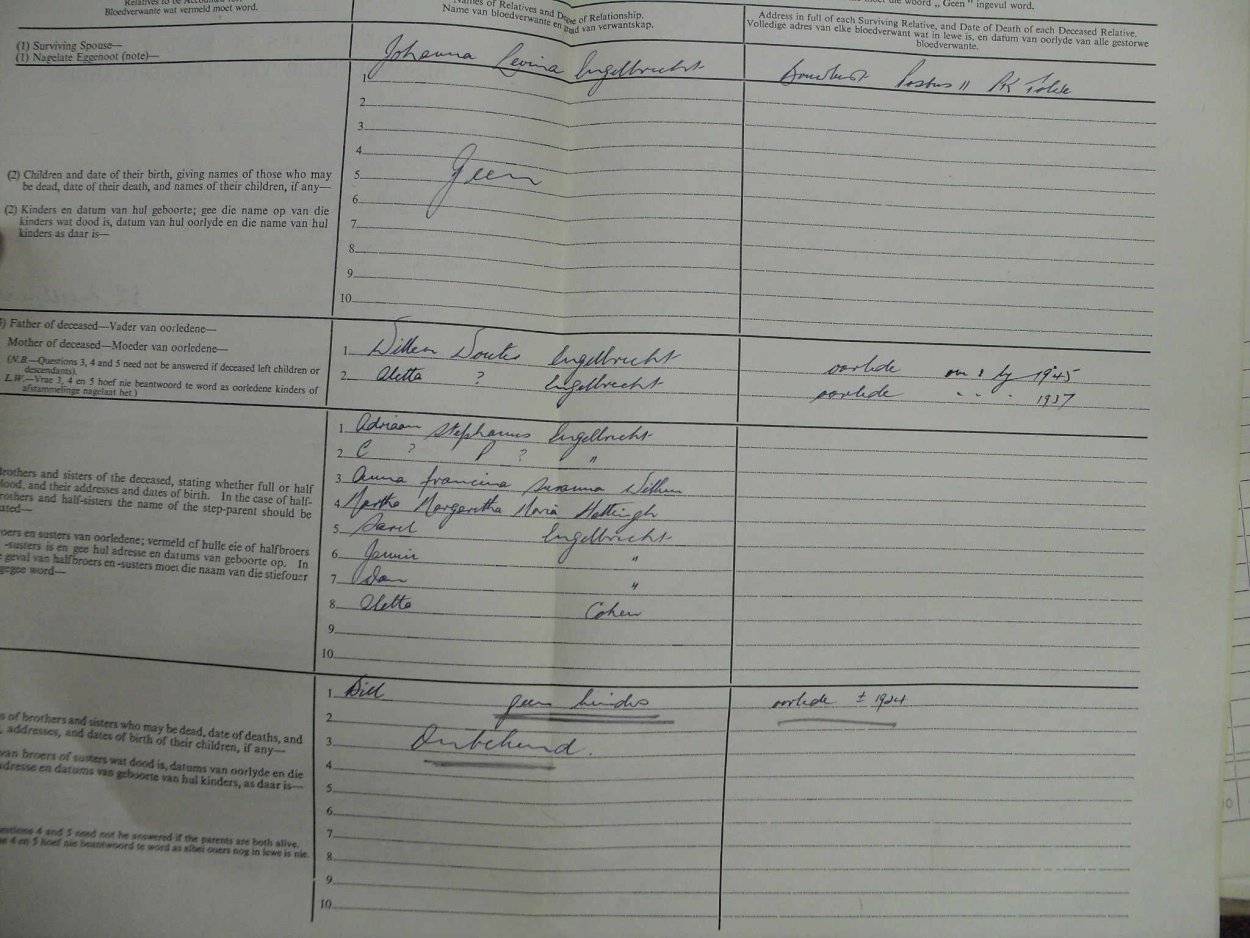 Relatives to be Accounted for.
Bloedverwante wat vermeld moet word.
Names of Relatives and Degree of Relationship.
Name van bloedverwante en graad van verwantskap.
moet die woord „ Geen " ingevul word.
Address in full of each Surviving Relative, and Date of Death of each Deceased Relative.
Volledige adres van elke bloedverwant wat in lewe is, en datum van oorlyde van alle gestorwe
bloedverwante.
(1) Surviving Spouse—
(1) Nagelate Eggenoot (note)—
Johanna Levina Engelbrecht
Posbus 11 PK
1
2
3
4
5
6
7
8
9
10
(2) Children and date of their birth, giving names of those who may
be dead, date of their death, and names of their children, if any—
(2) Kinders en datum van hul geboorte; gee die name op van die
kinders wat dood is, datum van hul oorlyde en die name van hul
kinders as daar is—
Geen
3) Father of deceased—Vader van oorledene—
Mother of deceased—Moeder van oorledene—
(N.B.—Questions 3, 4 and 5 need not be answered if deceased left children or
descendants).
L.W.—Vrae 3, 4 en 5 hoef nie beantwoord te word as oorledene kinders of
afstammelinge nagelaat het.)
1 Willem Wouter Engelbrecht oorlede 1945
2 Aletta ? Engelbrecht oorlede " " " 1937
rothers and sisters of the deceased, stating whether full or half
lood, and their addresses and dates of birth. In the case of half-
rothers and half-sisters the name of the step-parent should be
ated—
oers en susters van oorledene; vermeld of hulle eie of halfbroers
-susters is en gee hul adresse en datums van geboorte op. In
e geval van halfbroers en -susters moet die naam van die stiefouer
gegee word—
1 Adriaan Stephanus Engelbrecht
2 C ? P ? "
3 Anna Francina Susanna Willem
4 Martha Margaretha Maria Hattingh
5 Sarel Engelbrecht
6 "
7 Dan "
8 Aletta Cohen
9
10
s of brothers and sisters who may be dead, date of deaths, and
, addresses, and dates of birth of their children, if any—
van broers of susters wat dood is, datums van oorlyde en die
adresse en datums van geboorte van hul kinders, as daar is—
estions 4 and 5 need not be answered if the parents are both alive.
e 4 en 5 hoef nie beantwoord te word as albei ouers nog in lewe is nie.
1 Bill geen kinders oorlede ± 1924
2
3 Onbekend.
4
5
6
7
8
9
10